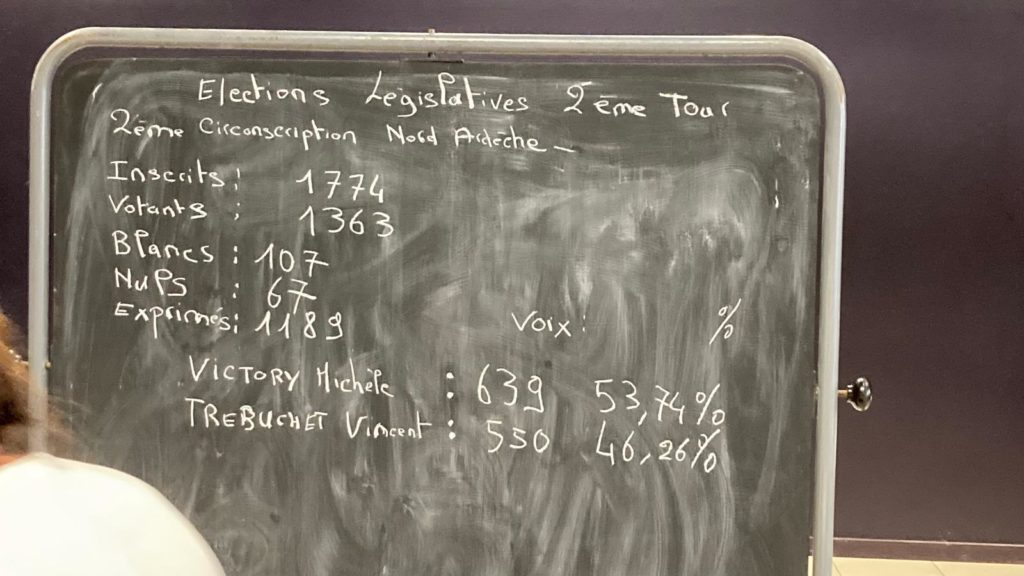 Elections Législatives 2ème Tour
2ème Circonscription Nord Ardèche_
Inscrits: 1774
Votants : 1363
Blancs : 107
Nuls : 67
Exprimés: 1189 Voix: %
VICTORY Michèle : 639 53,74%
TREBUCHET Vincent : 550 46,26%